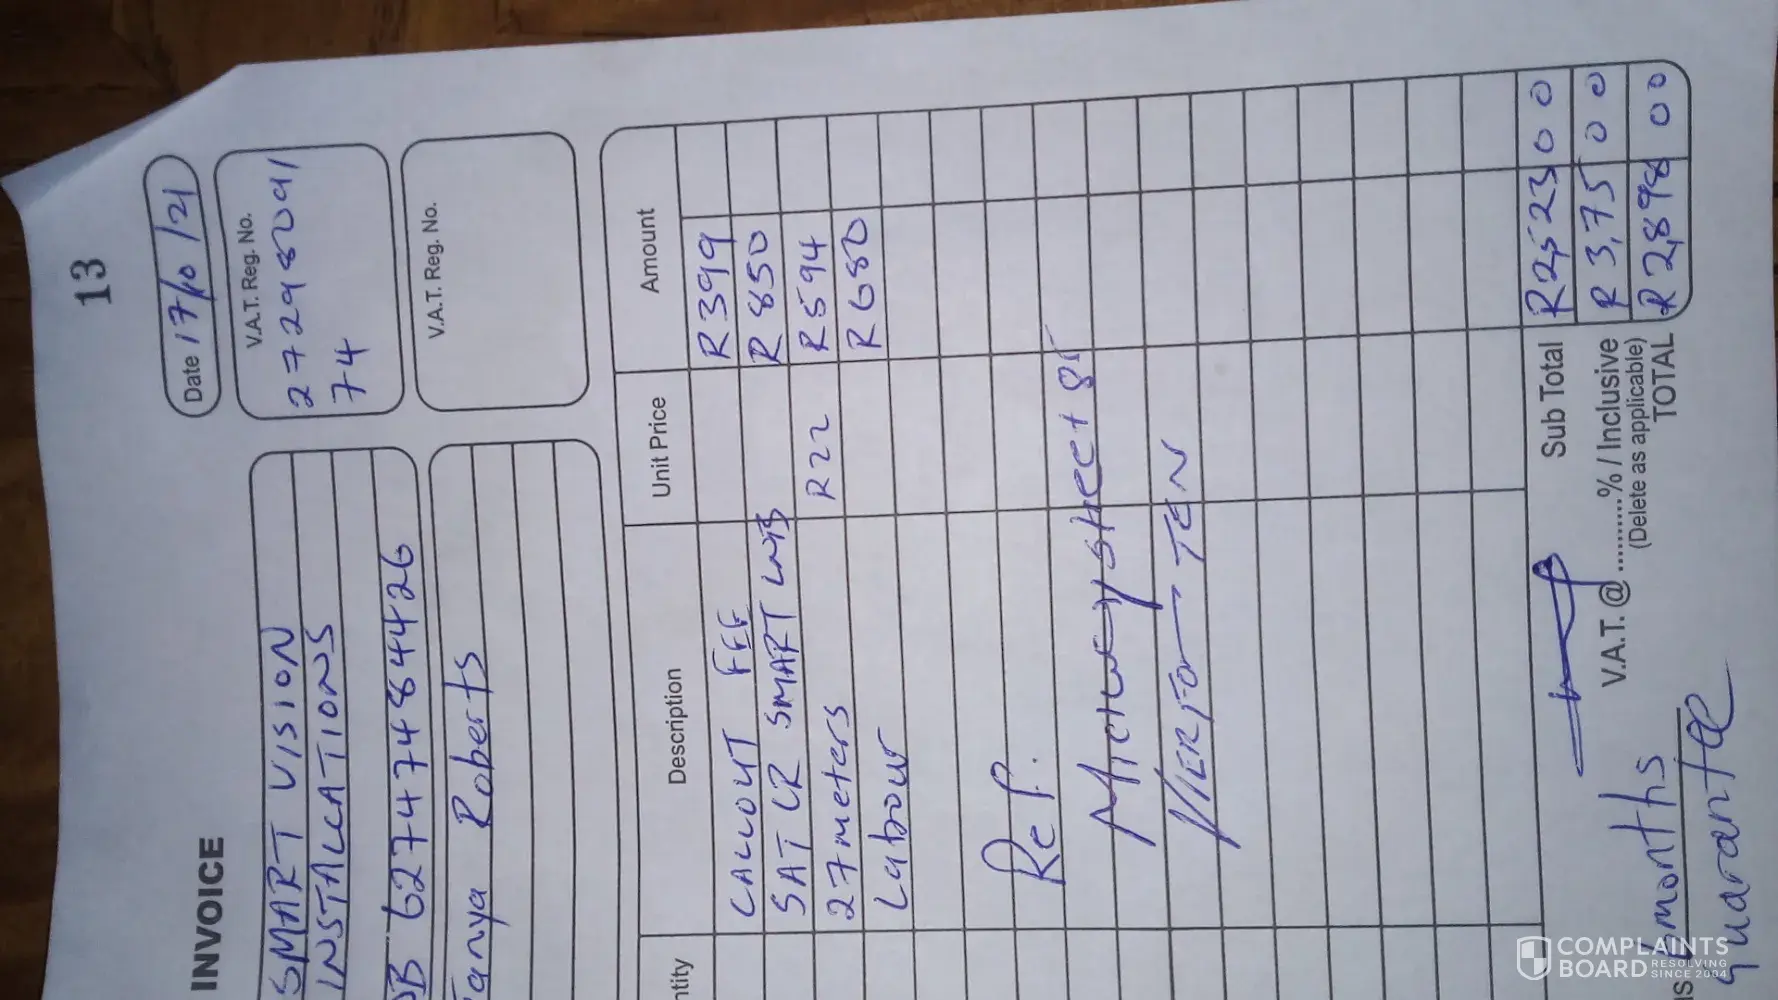 13
INVOICE
Date 17/10/21
SMART VISION
INSTALLATIONS
V.A.T. Reg. No.
272982091
74
B 62747484426
Tanya Roberts
V.A.T. Reg. No.
ntity Description Unit Price Amount
CALLOUT FEE R399
SAT LR SMART LNB R850
27meters R22 R594
Labour R680
Ref.
Sub Total R2,523 00
V.A.T. @ ..........% / Inclusive R3,75 00
(Delete as applicable)
TOTAL R2,898 00
6months
guarantee
COMPLAINTS
BOARD RESOLVING
SINCE 2004